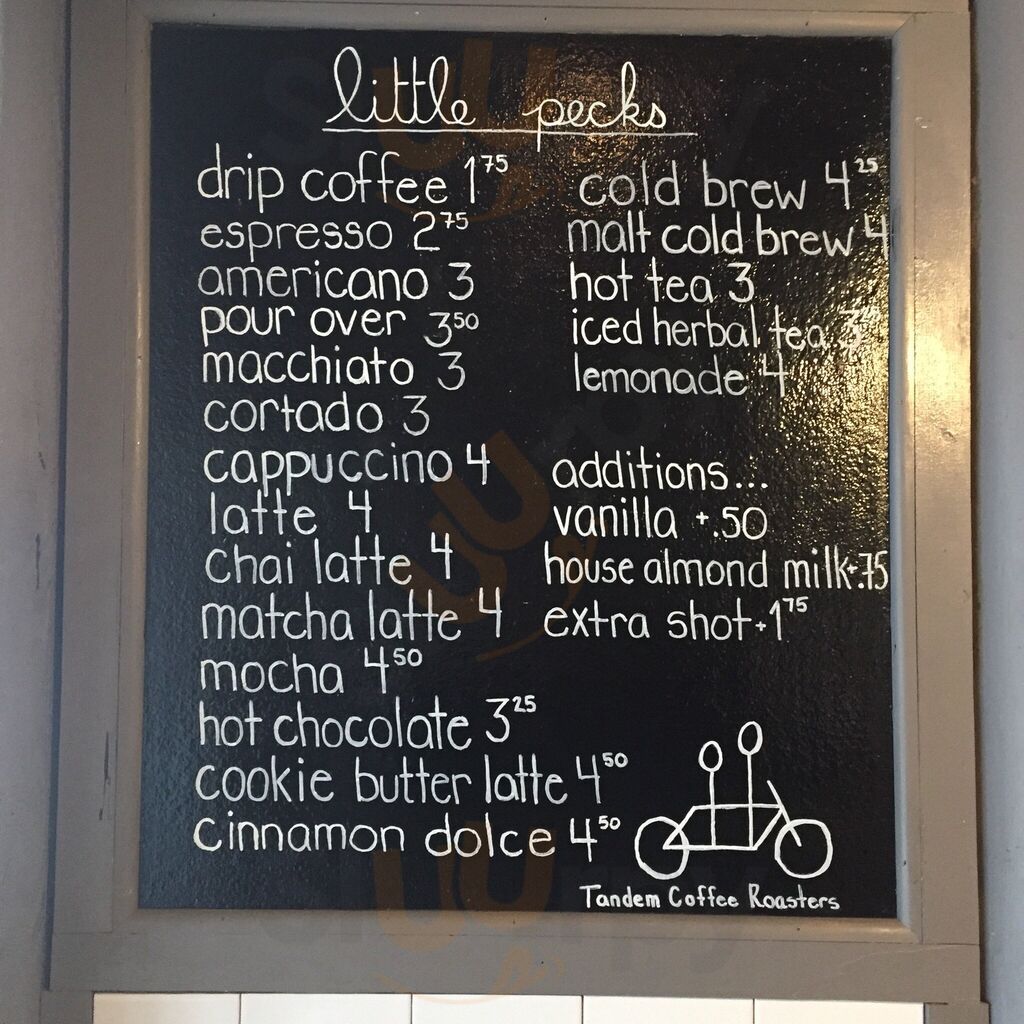 little pecks
drip coffee 1 75
espresso 2 75
americano 3
pour over 3 50
macchiato 3
cortado 3
cappuccino 4
latte 4
chai latte 4
matcha latte 4
mocha 4 50
hot chocolate 3 25
cookie butter latte 4 50
cinnamon dolce 4 50
cold brew 4 25
malt cold brew 4
hot tea 3
iced herbal tea
lemonade 4
additions...
vanilla +.50
house almond milk+.75
extra shot+1 75
Tandem Coffee Roasters